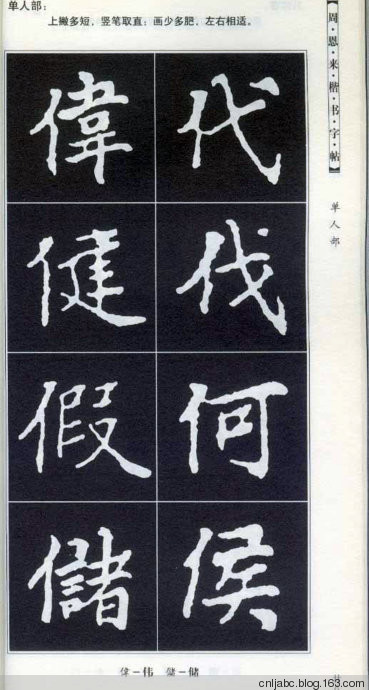 单人部：
上撇多短，竖笔取直；画少多肥，左右相适。
【周·恩·来·楷·书·字·帖】
单人部
代
伐
何
侯
偉
健
假
儲
偉－伟 儲－储
cnljabc.blog.163.com